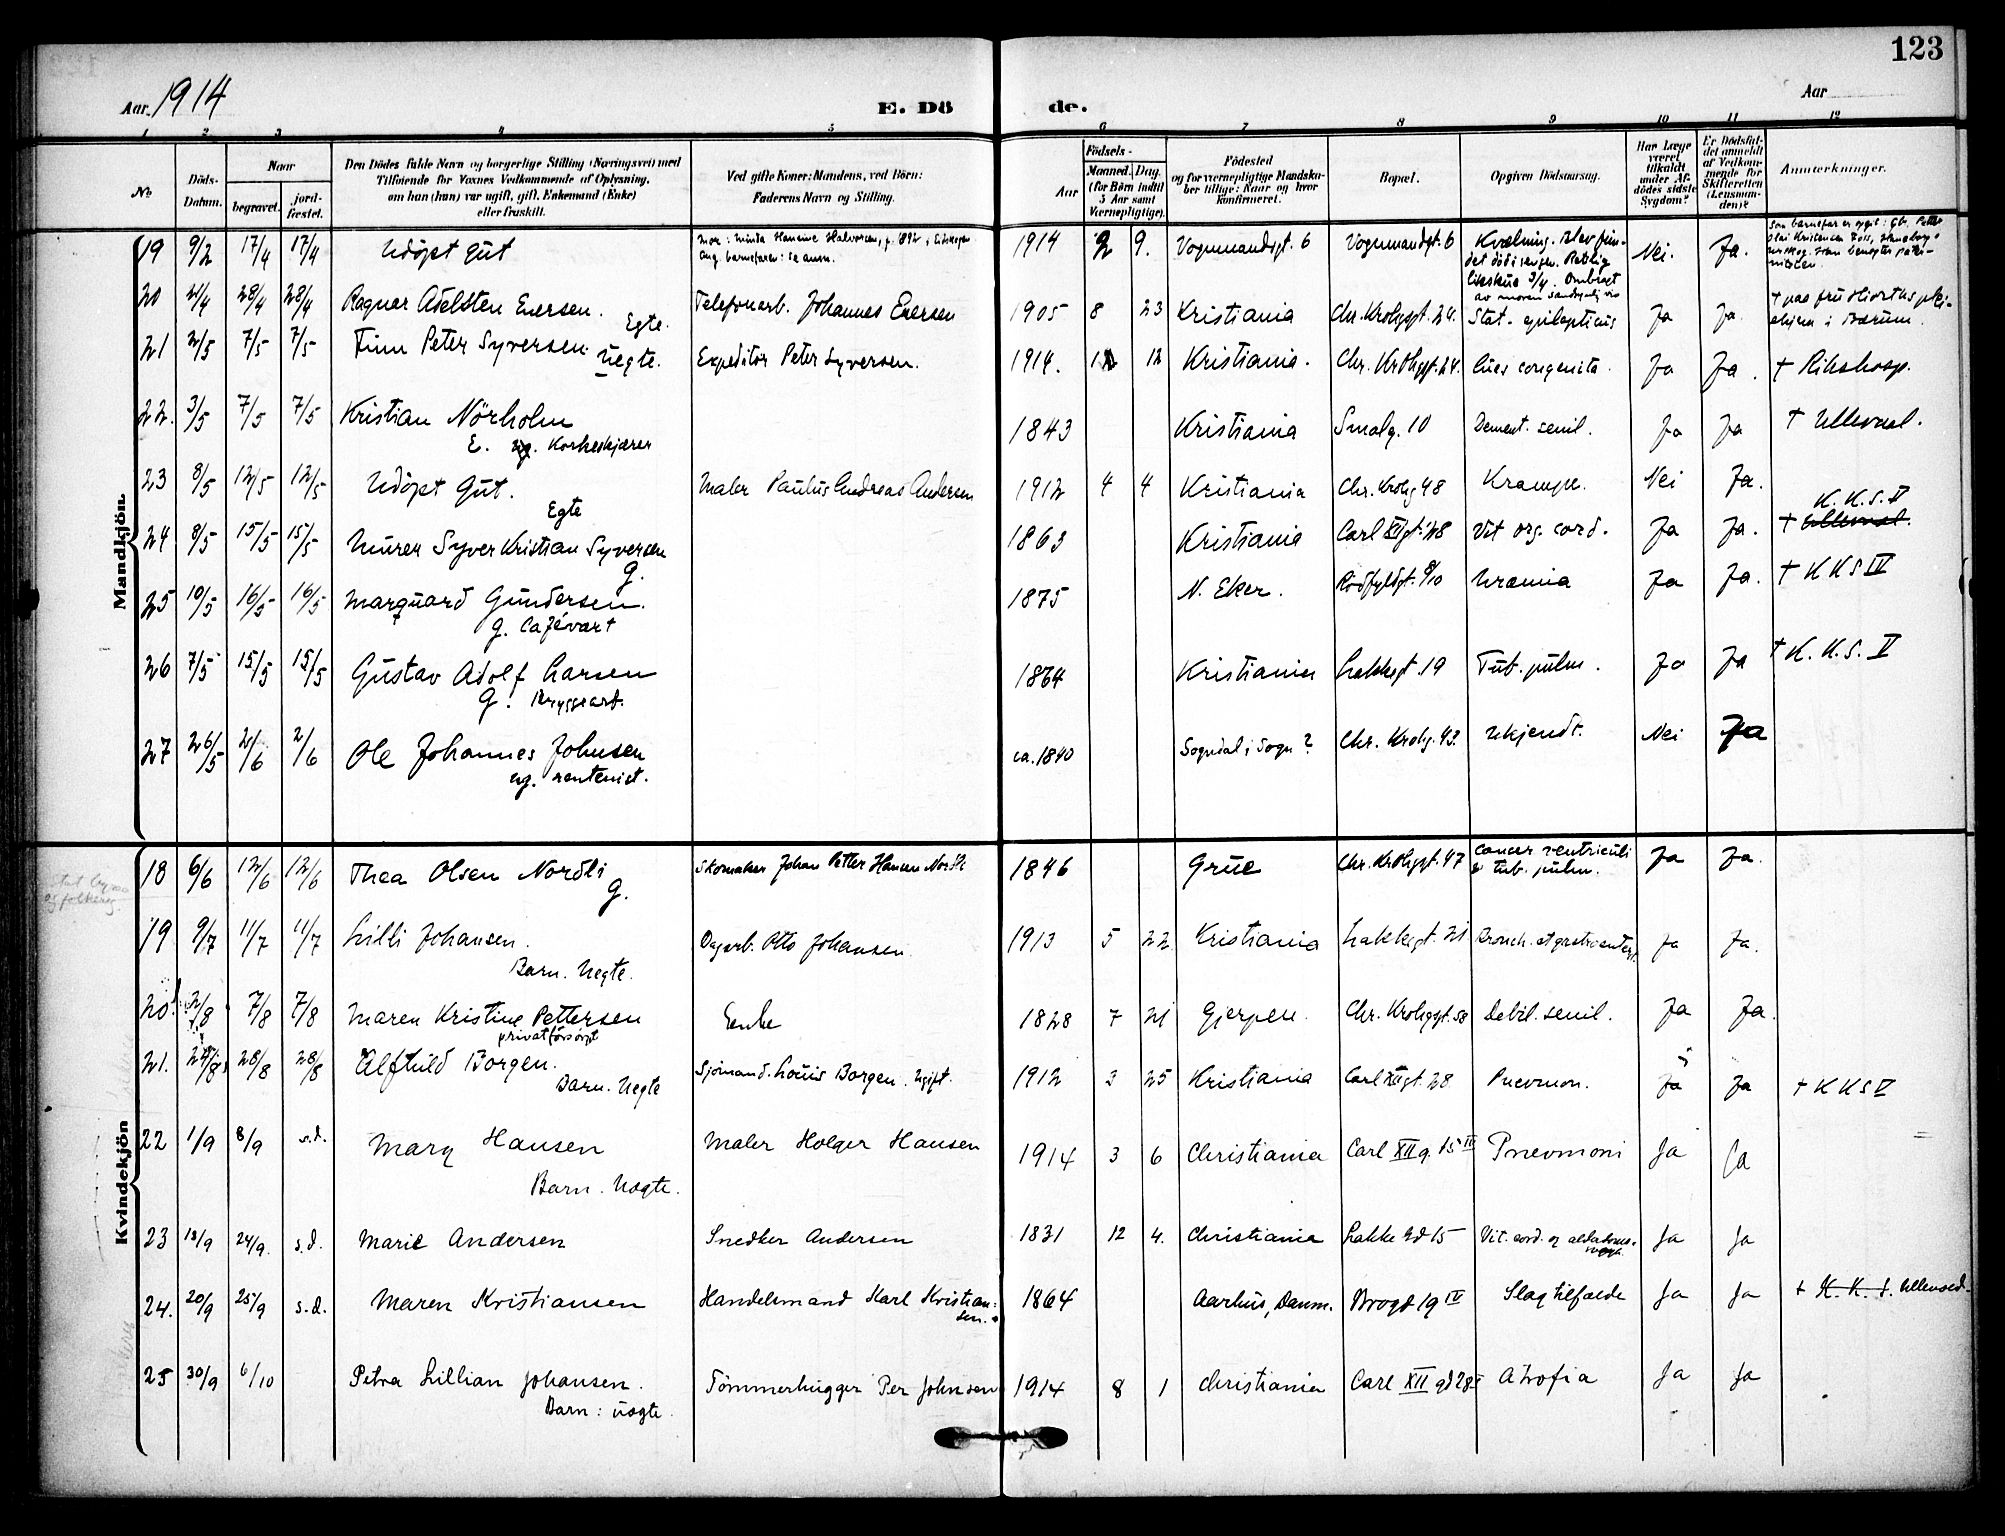 123
Aar 1914 E. Dö de. Aar
1 2 3 4 5 6 7 8 9 10 11 12
No Döds-Datum. Naar begravet. jordfæstet. Den Dödes fulde Navn og borgerlige Stilling (Næringsvei) med Tilföiende for Voxnes Vedkommende af Oplysning, om han (hun) var ugift, gift, Enkemand (Enke) eller fraskilt. Ved gifte Koner: Mandens, ved Börn: Faderens Navn og Stilling. Aar Födsels- Maaned. Dag. (for Börn indtil 5 Aar samt Værnepligtige). Födested og for værnepligtige Mandskaber tillige: Naar og hvor konfirmeret. Bopæl. Opgiven Dödsaarsag. Har Læge været tilkaldt under Afdödes sidste Sygdom? Er Dödsfaldet anmeldt af Vedkommende for Skifteretten (Lensmanden)? Anmærkninger.
Mandkjön
19 9/2 17/4 17/4 Udöpt gut Mor: Minda Hansine Halvorsen, f. 1892, ang. barnefaren: se anm. 1914 2 9. Vognmandsgt. 6 Vognmandsgt. 6 Kvælning. Blev fundet död i sengen. Nei. Ja.
20 21/4 28/4 28/4 Ragnar Adelsten Enersen. Egte. Telefonarb. Johannes Enersen 1905 8 23 Kristiania Chr. Krohgsgt. 24. Stat. epilepticus Ja Ja. i Bærum.
21 2/5 7/5 7/5 Finn Peter Syversen. Uegte. Expeditör Peter Syversen. 1914. 12 Kristiania. Chr. Krohgsgt. 24. Lues congenita. Ja Ja. † Rikshosp.
22. 3/5 7/5 7/5 Kristian Nörholm E. Korkeskjærer 1843 Kristiania Smalg. 10 Dement. senil. Ja Ja † Ullevaal.
23 8/5 12/5 12/5 Udöpt Gut. Egte Maler Paulus Andreas Andersen 1912 4 4 Kristiania Chr. Krohg 48 Krampe. Nei Ja.
24 8/5 15/5 15/5 Murer Syver Kristian Syversen G. 1863 Kristiania Carl XII gt. 28 Vit org. cord. Ja Ja. † Ullevaal. K.K.S. V
25 10/5 16/5 16/5 Marquard Gundersen. G. Cafévært 1875 N. Eker. Rödfyldgt. 8/10 Uræmia Ja Ja. † K K S IV
26 7/5 15/5 15/5 Gustav Adolf Larsen G. Bryggearb. 1864 Kristiania Lakkegt. 19 Tub. pulm. Ja Ja † K.K.S. V
27 26/5 2/6 2/6 Ole Johannes Johnsen ug. rentenist. ca. 1840 Sogndal i Sogn? Chr. Krohg. 43. Ukjendt. Nei Ja
Kvindekjön
18 6/6 12/6 12/6 Thea Olsen Nordli G. Skomaker Johan Petter Hansen Nordli 1846 Grue Chr. Krohgsgt. 47 Cancer ventriculi & tub. pulm. Ja Ja.
19 9/7 11/7 11/7 Lilli Johansen. Barn. Uegte. Dagarb. Otto Johansen. 1913 5 22 Kristiania Lakkegt. 21 Bronch. et gastroenter. Ja Ja.
20 2/8 7/8 7/8 Maren Kristine Pettersen privat forsörgt Enke 1828 7 21 Gjerpen. Chr. Krohgsgt. 58 Debil. senil. Ja Ja.
21. 24/8 28/8 28/8 Alfhild Borgen. Barn. Uegte Sjömand. Louis Borgen. Ugift. 1912 3 25 Kristiania Carl XII gt. 28 Pnevmon. Ja Ja † K K S V
22 1/9 8/9 s.d. Mary Hansen Barn. Uægte. Maler Holger Hansen 1914 3 6 Christiania Carl XII g. 15 III Pnevmoni Ja Ja
23 18/9 24/9. s.d. Marie Andersen Snedker Andersen 1831 12 4. Christiania Lakke gd 15 Vit. cord. og alderdoms- Ja Ja
24. 20/9 25/9 s.d. Maren Kristiansen Handelsmand Karl Kristiansen. 1864 Aarhus, Danm. Brogt 19 IV Slagtilfælde Ja Ja † K.K.S. Ullevaal.
25 30/9 6/10 Petra Lillian Johansen. Barn: uægte. Tömmerhugger Per Johnsen 1914 8 1 Christiania Carl XII gd 28 Atrofia Ja Ja